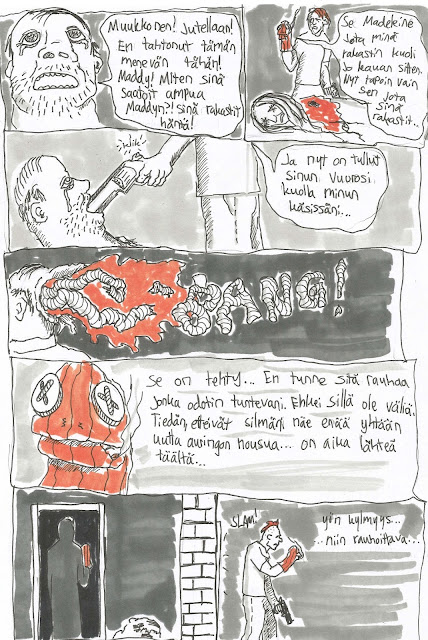 Muukkonen! Jutellaan!
En tahtonut tämän
menevän tähän!
Maddy! Miten sinä
saatoit ampua
Maddyn?! Sinä rakastit
häntä!
Se Madeleine
jota minä
rakastin kuoli
jo kauan sitten.
Nyt tapoin vain
sen jota
sinä
rakastit...
Ja nyt on tullut
sinun vuorosi
kuolla minun
käsissäni...
BANG!
Se on tehty... En tunne sitä rauhaa
jonka odotin tuntevani. Ehkei sillä ole väliä.
Tiedän, etteivät silmäni näe enää yhtään
uutta auringon nousua... on aika lähteä
täältä...
SLAM!
yön kylmyys...
...niin rauhoittava...